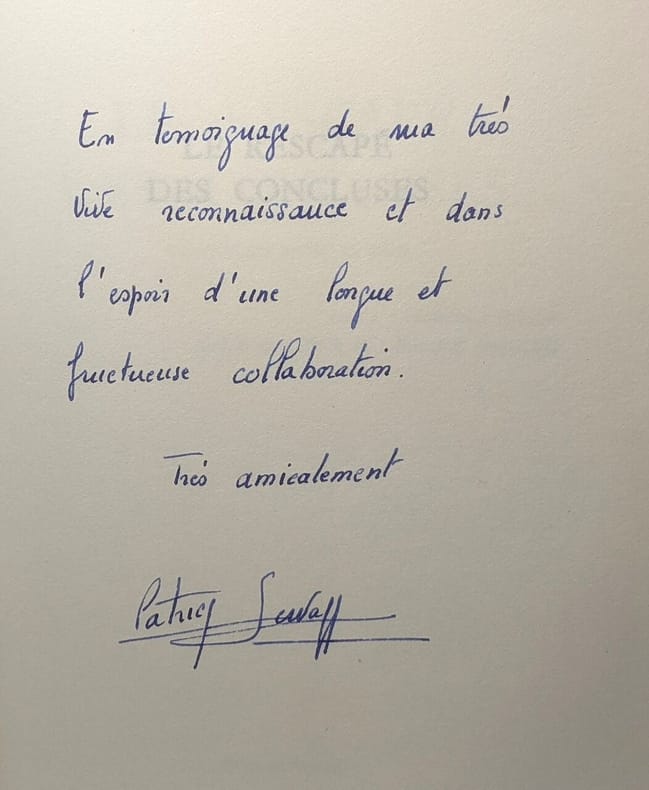 En temoignage de ma très
LE RESCAPÉ
DES CONCLUSES
vive reconnaissance et dans
l'espoir d'une longue et
fructueuse collaboration.
Très amicalement